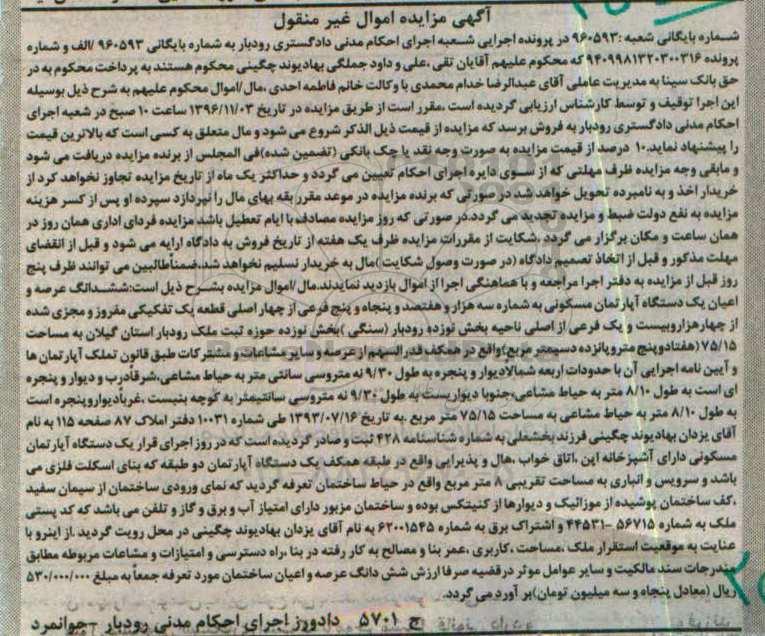 آگهی مزایده اموال غیر منقول
شماره بایگانی شعبه :۹۶۰۵۹۳ در پرونده اجرایی شعبه اجرای احکام مدنی دادگستری رودبار به شماره بایگانی ۹۶۰۵۹۳ /الف و شماره
پرونده ۹۴۰۹۹۸۱۳۲۰۳۰۰۳۱۶ که محکوم علیهم آقایان تقی ،علی و داود جملگی بهادیوند چگینی محکوم هستند به پرداخت محکوم به در
حق بانک سینا به مدیریت عاملی آقای عبدالرضا خدام محمدی با وکالت خانم فاطمه احدی ،مال/اموال محکوم علیهم به شرح ذیل بوسیله
این اجرا توقیف و توسط کارشناس ارزیابی گردیده است .مقرر است از طریق مزایده در تاریخ ۱۳۹۶/۱۱/۰۳ ساعت ۱۰ صبح در شعبه اجرای
احکام مدنی دادگستری رودبار به فروش برسد که مزایده از قیمت ذیل الذکر شروع می شود و مال متعلق به کسی است که بالاترین قیمت
را پیشنهاد نماید.۱۰ درصد از قیمت مزایده به صورت وجه نقد یا چک بانکی (تضمین شده)فی المجلس از برنده مزایده دریافت می شود
و مابقی وجه مزایده ظرف مهلتی که از سوی دایره اجرای احکام تعیین می گردد و حداکثر یک ماه از تاریخ مزایده تجاوز نخواهد کرد از
خریدار اخذ و به نامبرده تحویل خواهد شد.در صورتی که برنده مزایده در موعد مقرر بقه بهای مال را نپردازد سپرده او پس از کسر هزینه
مزایده به نفع دولت ضبط و مزایده تجدید می گردد.در صورتی که روز مزایده مصادف با ایام تعطیل باشد مزایده فردای اداری همان روز در
همان ساعت و مکان برگزار می گردد .شکایت از مقررات مزایده ظرف یک هفته از تاریخ فروش به دادگاه ارایه می شود و قبل از انقضای
مهلت مذکور و قبل از اتخاذ تصمیم دادگاه (در صورت وصول شکایت)مال به خریدار تسلیم نخواهد شد.ضمناًطالبین می توانند ظرف پنج
روز قبل از مزایده به دفتر اجرا مراجعه و با هماهنگی اجرا از اموال بازدید نمایند.مال/اموال مزایده بشرح ذیل است:ششدانگ عرصه و
اعیان یک دستگاه آپارتمان مسکونی به شماره سه هزار و هفتصد و پنجاه و پنج فرعی از چهار اصلی قطعه یک تفکیکی مفروز و مجزی شده
از چهارهزاروبیست و یک فرعی از اصلی ناحیه بخش نوزده رودبار (سنگی )بخش نوزده حوزه ثبت ملک رودبار استان گیلان به مساحت
۷۵/۱۵(هفتادوپنج متروپانزده دسیمتر مربع)واقع در همکف قدرالسهم از عرصه و سایر مشاعات و مشترکات طبق قانون تملک آپارتمان ها
و آیین نامه اجرایی آن با حدودات اربعه شمالاًدیوار و پنجره به طول ۹/۳۰ نه متروسی سانتی متر به حیاط مشاعی،شرقاًدرب و دیوار و پنجره
ای است به طول ۸/۱۰ متر به حیاط مشاعی،جنوبا دیواریست به طول ۹/۳۰ نه متروسی سانتیمتر به کوچه بنیست .غرباًدیواروپنجره است
به طول ۸/۱۰ متر به حیاط مشاعی به مساحت ۷۵/۱۵ متر مربع .به تاریخ ۱۳۹۳/۰۷/۱۶ طی شماره ۱۰۰۳۱ دفتر املاک ۸۷ صفحه ۱۱۵ به نام
آقای یزدان بهادیوند چگینی فرزند بخشعلی به شماره شناسنامه ۴۲۸ ثبت و صادر گردیده است که در روز اجرای قرار یک دستگاه آپارتمان
مسکونی دارای آشپزخانه اپن ،اتاق خواب ،هال و پذیرایی واقع در طبقه همکف یک دستگاه آپارتمان دو طبقه که بنای اسکلت فلزی می
باشد و سرویس و انباری به مساحت تقریبی ۸ متر مربع واقع در حیاط ساختمان تعرفه گردید که نمای ورودی ساختمان از سیمان سفید
،کف ساختمان پوشیده از موزائیک و دیوارها از کنیتکس بوده و ساختمان مزبور دارای امتیاز آب و برق و گاز و تلفن می باشد که کد پستی
ملک به شماره ۵۶۷۱۵ -۴۴۵۳۱ و اشتراک برق به شماره ۶۲۰۰۱۵۴۵ به نام آقای یزدان بهادیوند چگینی در محل رویت گردید .از اینرو با
عنایت به موقعیت استقرار ملک ،مساحت ،کاربری ،عمر بنا و مصالح به کار رفته در بنا ،راه دسترسی و امتیازات و مشاعات مربوطه مطابق
مندرجات سند مالکیت و سایر عوامل موثر در قضیه صرفا ارزش شش دانگ عرصه و اعیان ساختمان مورد تعرفه جمعاً به مبلغ ۵۳۰/۰۰۰/۰۰۰
ریال (معادل پنجاه و سه میلیون تومان)بر آورد می گردد.
ج ۵۷۰۱ دادورز اجرای احکام مدنی رودبار -جوانمرد